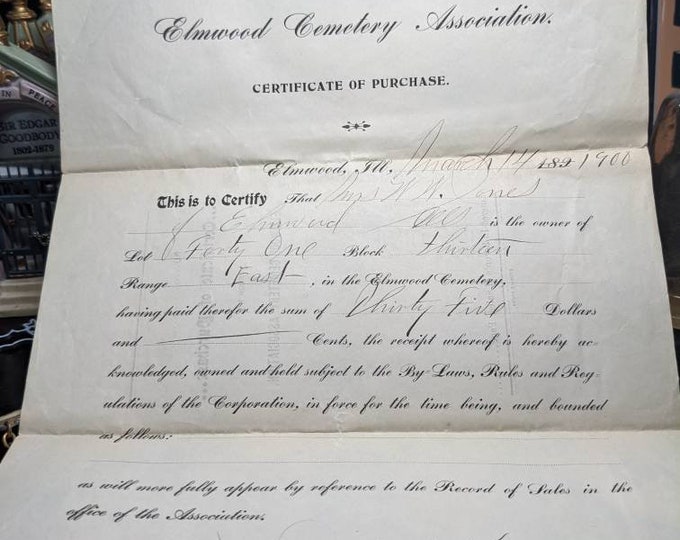 Elmwood Cemetery Association.
CERTIFICATE OF PURCHASE.
Elmwood, Ill, March 14 189 1900
This is to Certify That Mrs W. W. Jones
of Elmwood Ills is the owner of
Lot Forty One Block Thirteen
Range East, in the Elmwood Cemetery,
having paid therefor the sum of Thirty Five Dollars
and Cents, the receipt whereof is hereby ac-
knowledged, owned and held subject to the By-Laws, Rules and Reg-
ulations of the Corporation, in force for the time being, and bounded
as follows:
as will more fully appear by reference to the Record of Sales in the
office of the Association.
IN PEACE
SIR EDGAR
GOODBODY
1802-1879